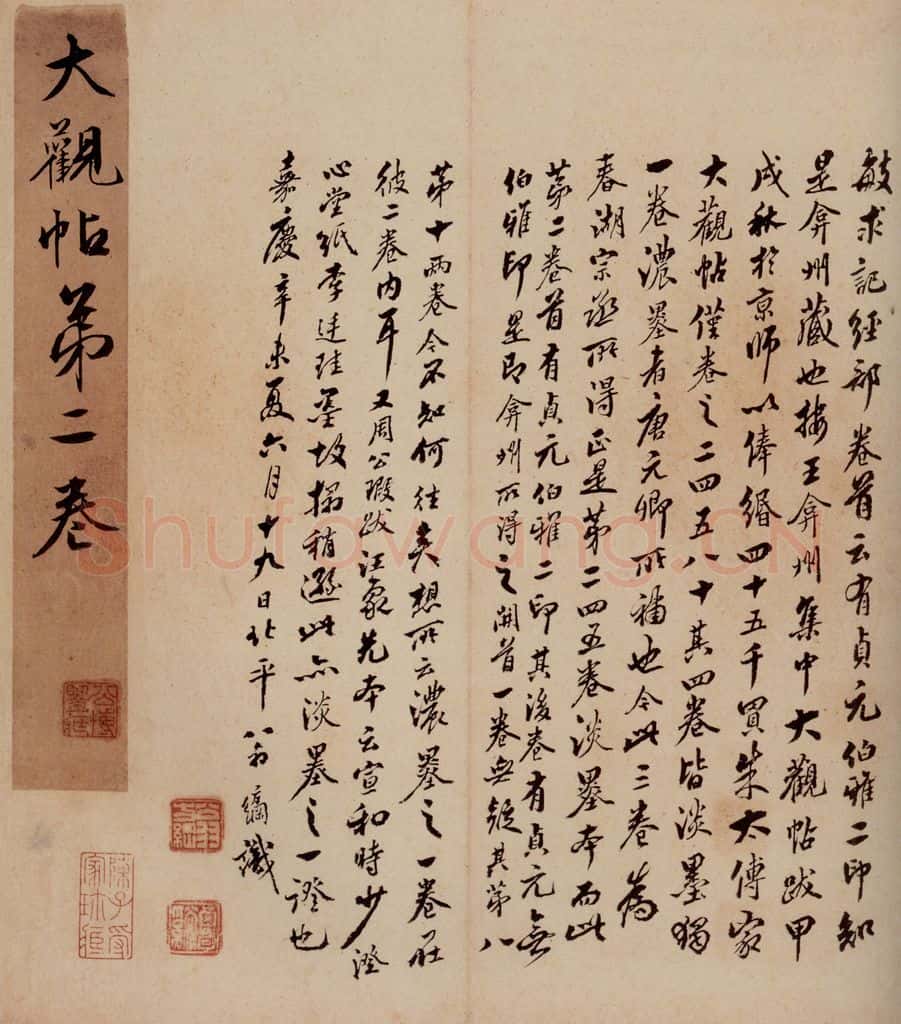 敏求記經部卷首云有貞元伯雅二印知
是弇州藏也按王弇州集中大觀帖跋甲
戌秋於京師以俸緡四十五千買朱太傅家
大觀帖僅卷之二四五八十其四卷皆淡墨獨
一卷濃墨者唐元卿所補也今此三卷為
春湖宗丞所得正是第二四五卷淡墨本而此
第二卷首有貞元伯雅二印其後卷有貞元無
伯雅印是即弇州所得之開首一卷無疑其第八
第十兩卷今不知何往矣想所云濃墨之一卷在
彼二卷内耳又周公瑕跋汪象先本云宣和時少澄
心堂紙李廷珪墨故搨稍遜此亦淡墨之一證也
嘉慶辛未夏六月十九日北平八十翁識
大觀帖第二卷
Shufawang.CN